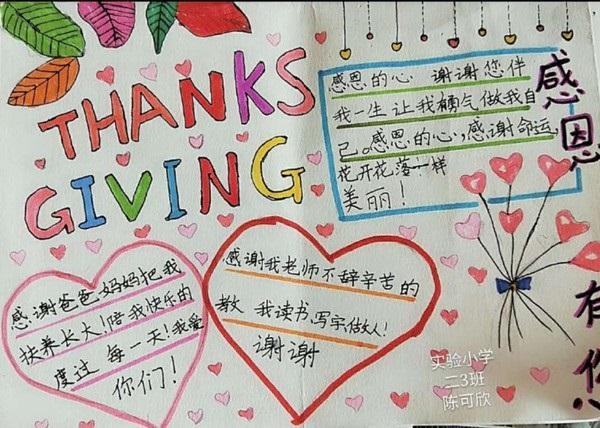 THANKS
GIVING
感恩的心 谢谢您伴
我一生 让我有勇气做我自
己。感恩的心,感谢命运,
花开花落一样
美丽!
感恩
有您
感谢爸爸、妈妈把我
扶养长大!陪我快乐的
度过 每一天!我爱
你们!
感谢我老师不辞辛苦的
教 我读书,写字,做人!
谢谢
实验小学
二3班
陈可欣